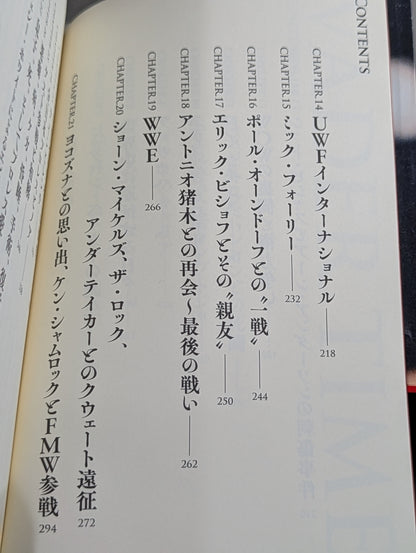 CONTENTS
CHAPTER.14 UWFインターナショナル 218
CHAPTER.15 ミック・フォーリー 232
CHAPTER.16 ポール・オーンドーフとの〝一戦〟 244
CHAPTER.17 エリック・ビショフとその〝親友〟 250
CHAPTER.18 アントニオ猪木との再会～最後の戦い 262
CHAPTER.19 WWE 266
CHAPTER.20 ショーン・マイケルズ、ザ・ロック、
アンダーテイカーとのクウェート遠征 272
CHAPTER.21 ヨコズナとの思い出、ケン・シャムロックとFMW参戦 294